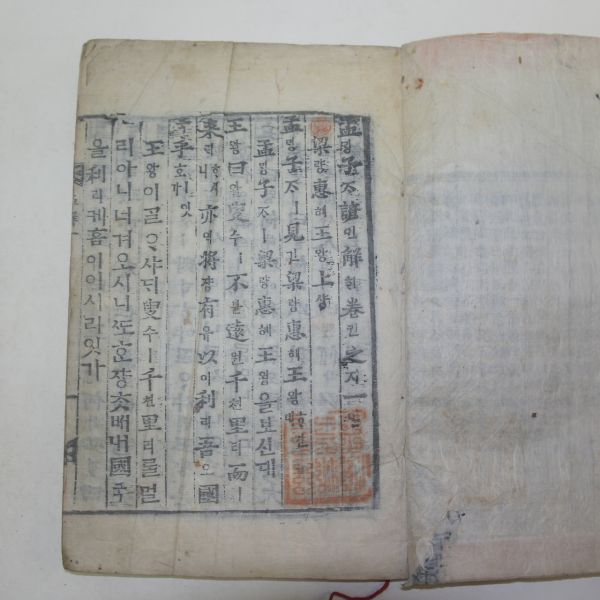 孟ᄆᆡᆼ子ᄌᆞ諺언解ᄒᆡ卷권之지一일
梁량惠혜王왕上샹
孟ᄆᆡᆼ子ᄌᆞㅣ見견梁량惠혜王왕
孟ᄆᆡᆼ子ᄌᆞㅣ梁량惠혜王왕을보신대
王왕曰왈叟수ㅣ不블遠원千쳔里리而
來ᄅᆡᄒᆞ시니亦역將쟝有유以이利리吾오國
乎호ㅣ잇가
王왕이ᄀᆞᆯᄋᆞ샤ᄃᆡ叟수ㅣ千쳔里리ᄅᆞᆯ멀
리아니너겨오시니ᄯᅩᄒᆞᆫ쟝ᄎᆞᆺᄡᅥ내國국
을利리케홈이이시리잇가